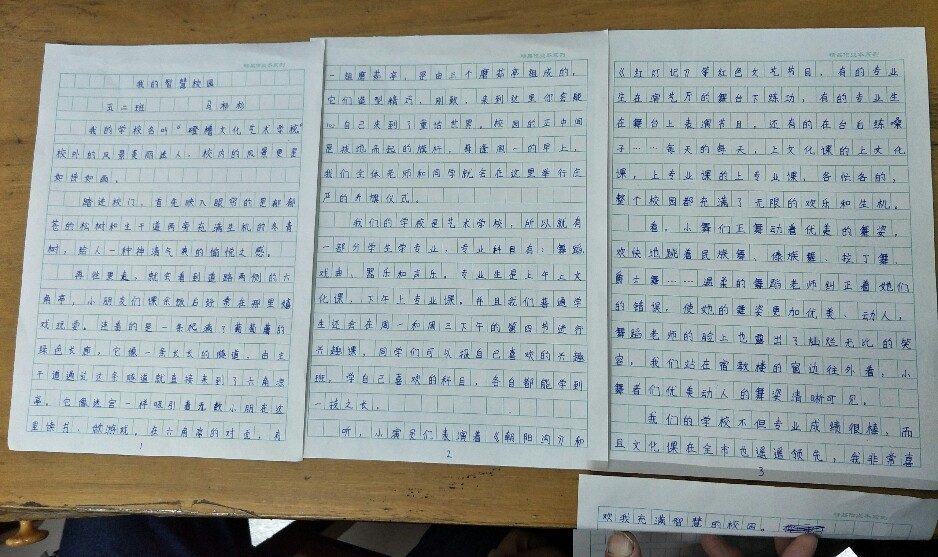 我的智慧校园
五二班
我的学校名叫“嘐嘈文化艺术学校”
校外的风景美丽迷人，校内的风景更是
如诗如画。
踏进校门，首先映入眼帘的是郁郁
苍苍的松树和主干道两旁充满生机的冬青
树，给人一种神清气爽的愉悦之感。
再往里走，就会看到道路两侧的六
角亭，小朋友们课余饭后经常在那里嬉
戏玩耍。连着的是一条爬满了葡萄藤的
绿色长廊，它像一条长长的隧道，由主
干道通过这条隧道就直接来到了六角凉
亭。它像迷宫一样吸引着无数小朋在这
里读书、做游戏。在六角亭的对面，有
1
一组蘑菇亭，是由三个蘑菇亭组成的，
它们造型精巧、别致，来到这里你会疑
心自己来到了童话世界。校园的正中间
是拔地而起的旗杆，每逢周一的早上，
我们全体老师和同学就会在这里举行庄
严的升旗仪式。
我们的学校是艺术学校，所以就有
一部分学生学专业，专业科目有：舞蹈、
戏曲、器乐和声乐。专业生是上午上文
化课，下午上专业课，并且我们普通学
生还会在周一和周三下午的第四节进行
兴趣课，同学们可以报自己喜欢的兴趣
班，学自己喜欢的科目，各自都能学到
一技之长。
听，小演员们表演着《朝阳沟》和
2
《红灯记》等红色文艺节目，有的专业
生在演艺厅的舞台下练功，有的专业生
在舞台上表演节目，还有的在台后练嗓
子……每天的每天，上文化课的上文化
课，上专业课的上专业课，各忙各的，
整个校园都充满了无限的欢乐和生机。
看，小舞们正舞动着优美的舞姿，
欢快地跳着民族舞、傣族舞、拉丁舞、
爵士舞……温柔的舞蹈老师纠正着她们
的错误，使她的舞姿更加优美、动人，
舞蹈老师的脸上也露出了灿烂无比的笑
容，我们站在宿教楼的窗边往外看，小
舞者们优美动人的舞姿清晰可见。
我们的学校不但专业成绩很棒，而
且文化课在全市也遥遥领先，我非常喜
3
欢我充满智慧的校园。